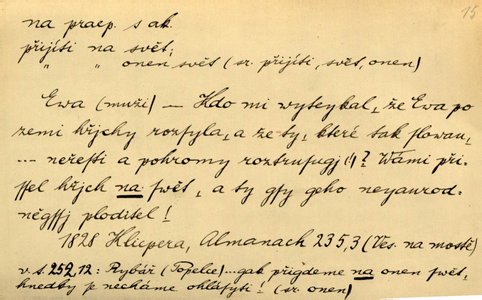 15
na praep. s ak.
přijíti na svět;
" " onen svět (sr. přijíti, svět, onen)
Ewa (muži) — Kdo mi wyteykal, že Ewa po
zemi křjchy rozsyla, a že ty, které tak slowau,
... neřesti a pohromy roztrusugj (!)? Wámi při-
ssel křjch na swět, a ty gsy geho neyaurod-
něgssj ploditel!
1828 Klicpera, Almanach 235,3 (Ves. na mostě)
v. s. 252,12: Rybář (Topelec) ... gak přigdeme na onen swět,
hnedky se necháme ohlásyti! (sr. onen)